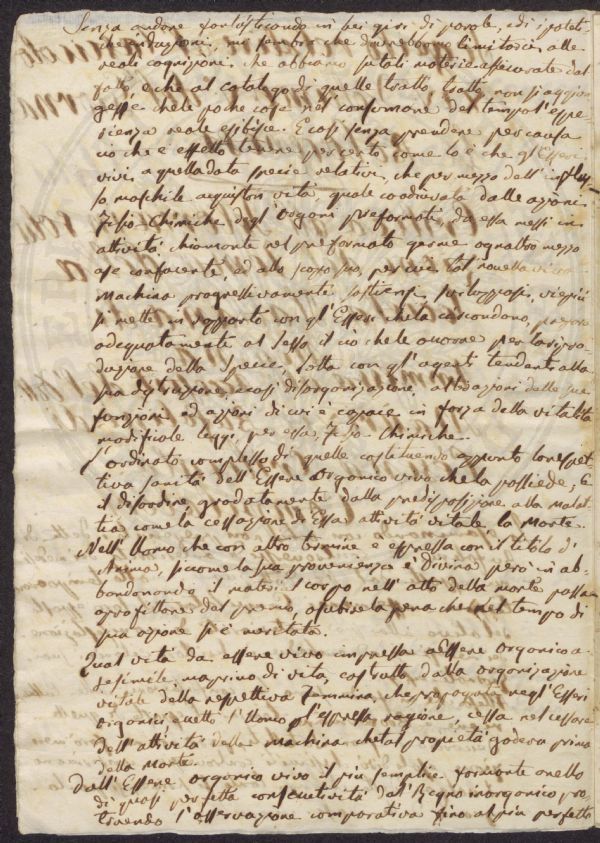 Senza andare fantasticando in bei giri di parole, ed ipoteti
che induzioni, mi sembra che dovrebbonsi limitarsi alle
reali cognizioni che abbiamo su tali materie assicurate dal
fatto, e che al catalogo di quelle tratto, tratto non si aggiun
gesse che le poche cose nel consumane del tempo l'espe-
rienza reale esibisce. E così senza prendere per causa
ciò che è effetto tenere per certo come lo è che gl'Esseri
vivi a quella data specie relativi, che per mezzo dell'influs
so maschile acquistan vita, quale coadiuvata dalle azioni
Fisio Chimiche degl'Organi preformati, da essa messi in
attività chiamante nel preformato germe ogn'altro mezzo
a se confacente, ad allo scopo suo, per cui tal novella viva
Macchina progressivamente sostiensi, sviluppasi, vieppiù
si mette in rapporto con gl'Esseri che la circondano,
adequatamente al sesso il ciò che le occorre per la ripro
duzione della Specie, lotta con gl'agenti tendenti alla
sua distruzione, e così disorganizazione. Ed azioni delle sue
funzioni ed azioni di cui è capace in forza della vitalità
modificale leggi per essa Fisio Chimiche.
L'ordinato complesso di quelle costituendo appunto la respet
tiva sanità dell'Essere Organico vivo che la possiede, E
il disordine gradatamente dalla predisposizione alla Malat
tia, come la cessazione di Essa attività vitale la Morte.
Nell'Uomo che con altro termine è espressa con il titolo di
Anima, siccome la sua provenienza è divina però in ab
bandonando il material corpo nell'atto della morte passa
a profittare del premio, o subire la pena che nel tempo di
sua azione si è meritata.
Qual vita da essere vivo impressa a Essere Organico a
se simile, ma privo di vita, costrutto dalla organizazione
vitale della respettiva Femmina che propagata negl'Esseri
organici eccetto l'Uomo per l'espressa ragione, cessa nel cessare
dell'attività della macchina che tal proprietà godeva prima
della Morte.
Dall'Essere organico vivo il più semplice formante anello
di quasi perfetta consecutività dal Regno inorganico, pro
traendo l'osservazione comparativa fino al più perfetto